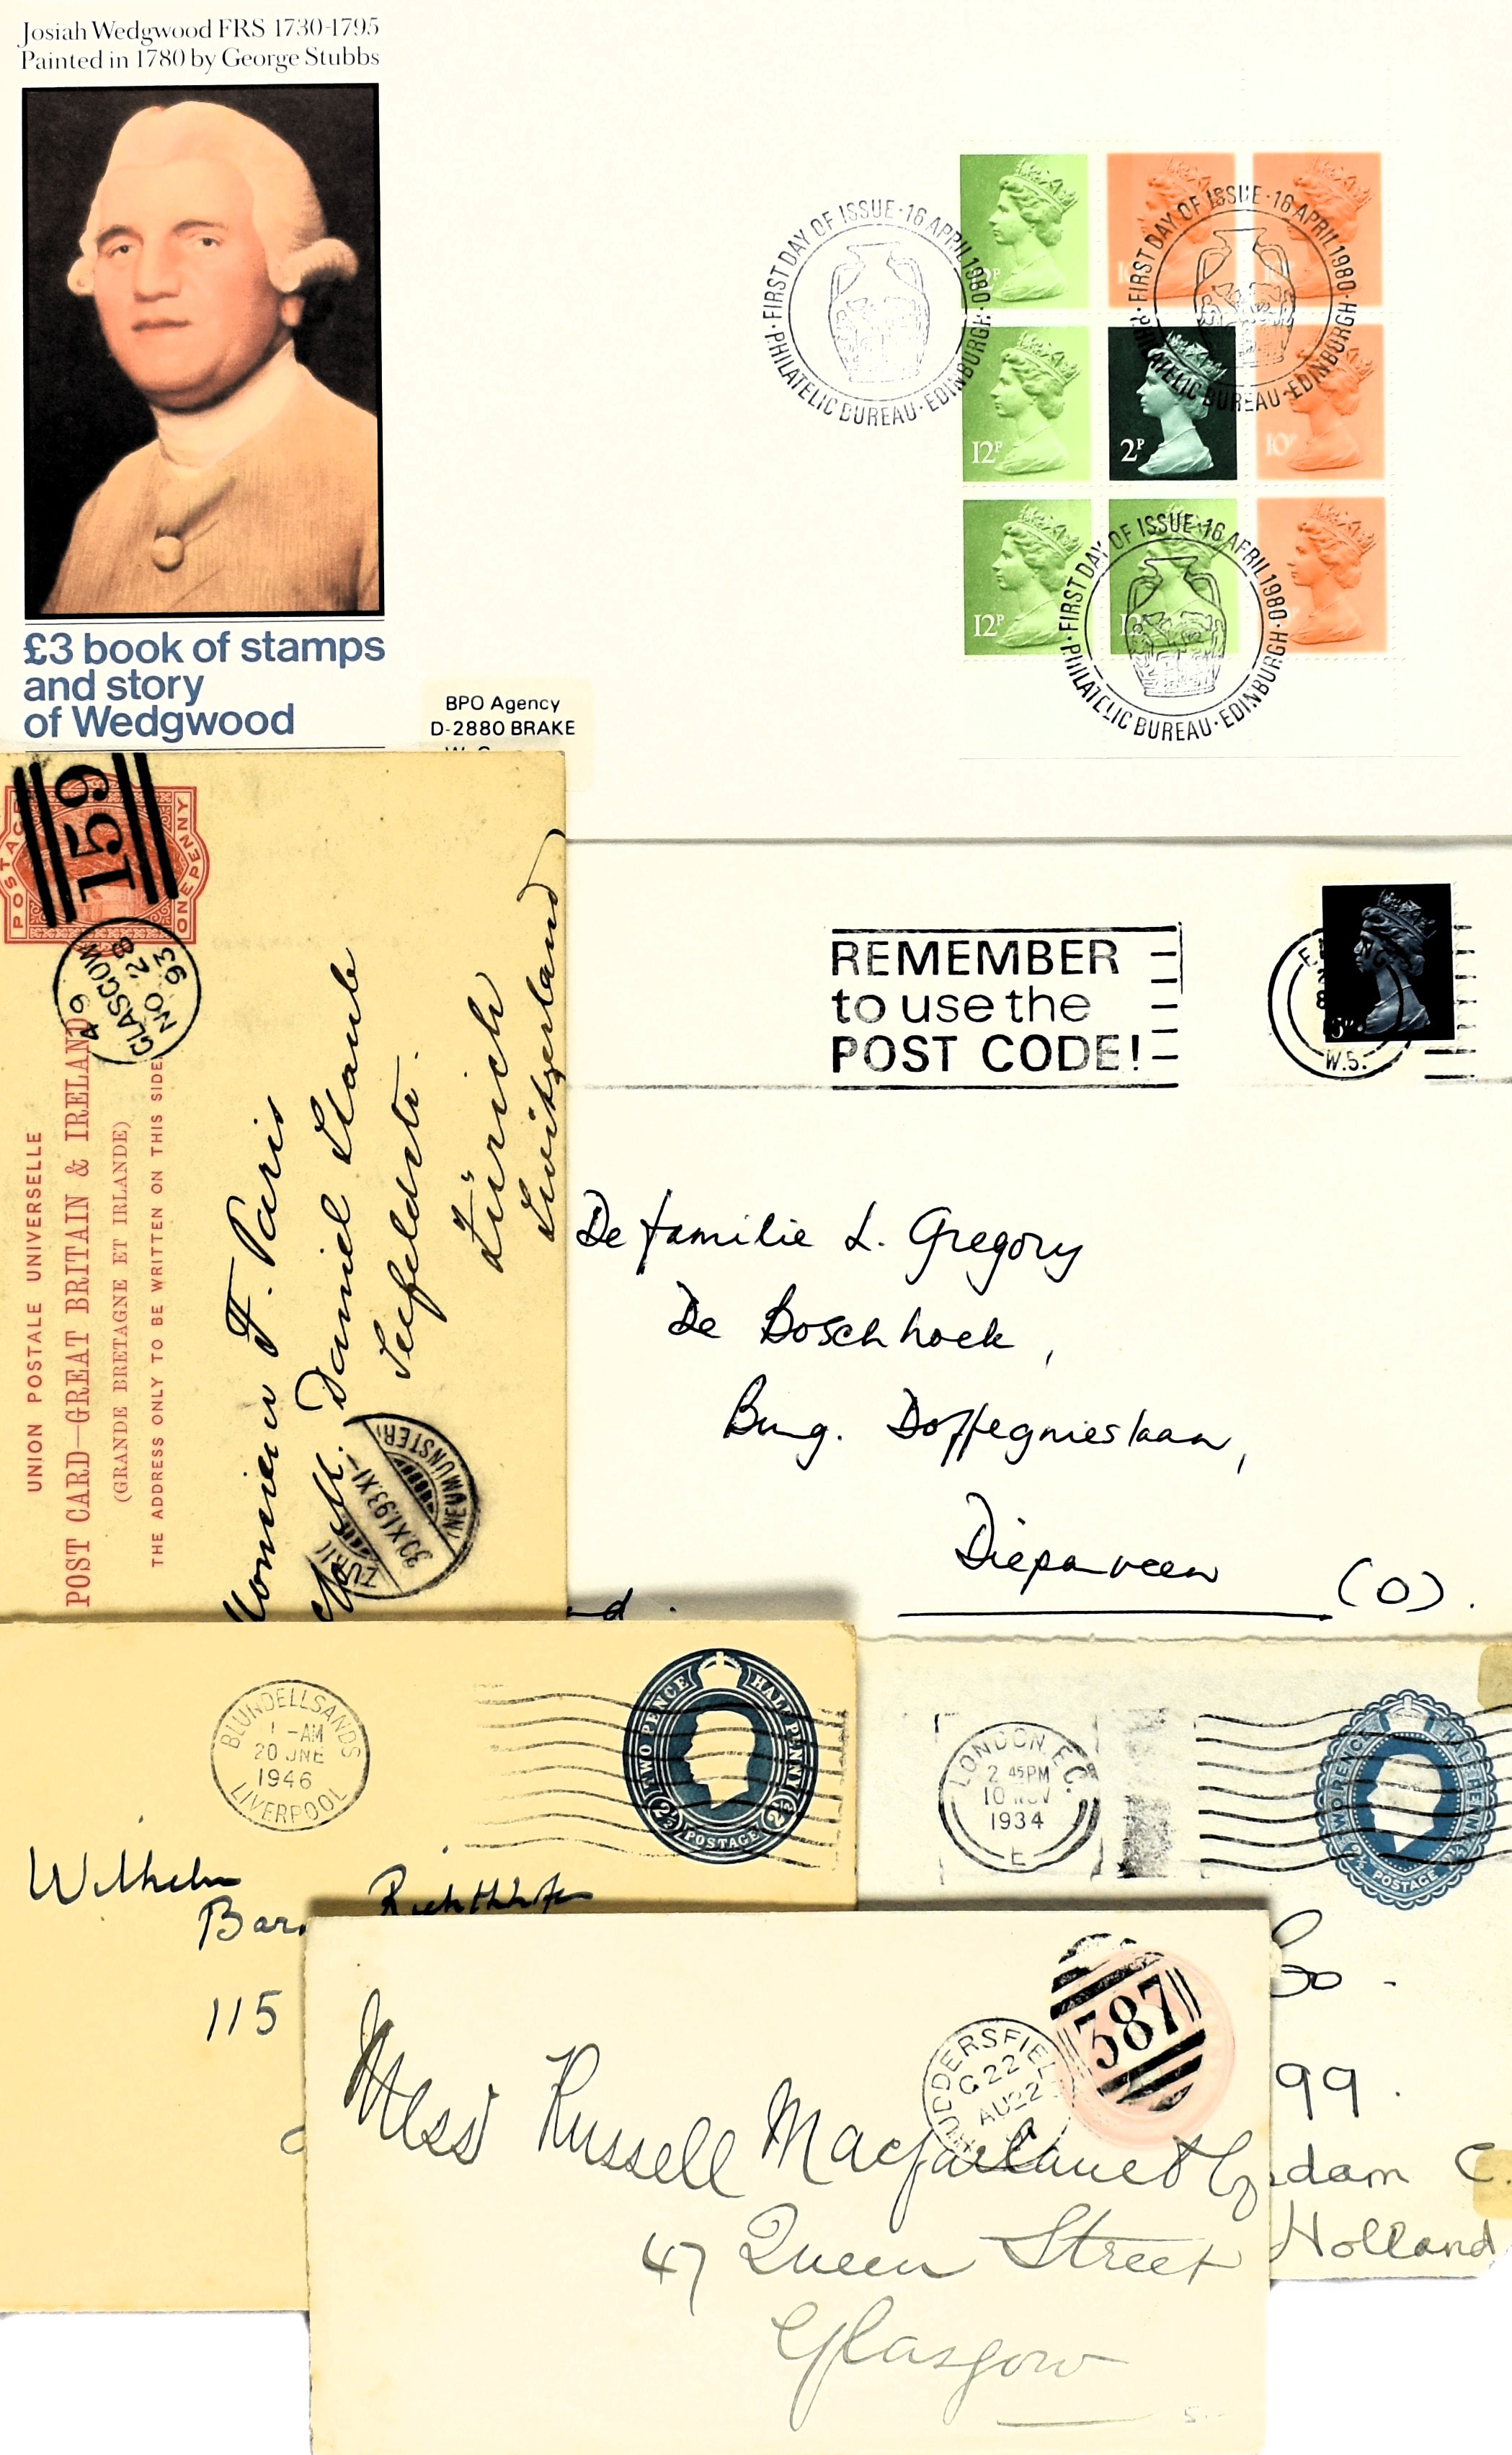 Josiah Wedgwood FRS 1730-1795
Painted in 1780 by George Stubbs
£3 book of stamps
and story
of Wedgwood
BPO Agency
D-2880 BRAKE
·FIRST DAY OF ISSUE·16 APRIL 1980·
PHILATELIC BUREAU·EDINBURGH
·FIRST DAY OF ISSUE·16 APRIL 1980·
PHILATELIC BUREAU·EDINBURGH
·FIRST DAY OF ISSUE·16 APRIL 1980·
PHILATELIC BUREAU·EDINBURGH
12P
2P
10P
12P
POSTAGE
ONE PENNY
159
GLASGOW
NO 28
93
UNION POSTALE UNIVERSELLE
POST CARD—GREAT BRITAIN & IRELAND
(GRANDE BRETAGNE ET IRLANDE)
THE ADDRESS ONLY TO BE WRITTEN ON THIS SIDE
F. Paris
Daniel Staub
Seefeldstr.
Zürich
Switzerland
30.XI.93.XI-
(NEUMÜNSTER)
REMEMBER
to use the
POST CODE!
W.5.
De familie L. Gregory
De Boschhoek,
Burg. Doffegnieslaan,
Diepenveen (O).
BLUNDELLSANDS
1 -AM
20 JNE
1946
LIVERPOOL
TWO PENCE HALF PENNY
2½ POSTAGE 2½
Wilhelm
115
LONDON. E.C.
2 45PM
10 NOV
1934
E
POSTAGE
99.
dam C.
Holland
HUDDERSFIEL
G 22
AU 22
387
Mess Russell Macfarlane & Co
47 Queen Street
Glasgow